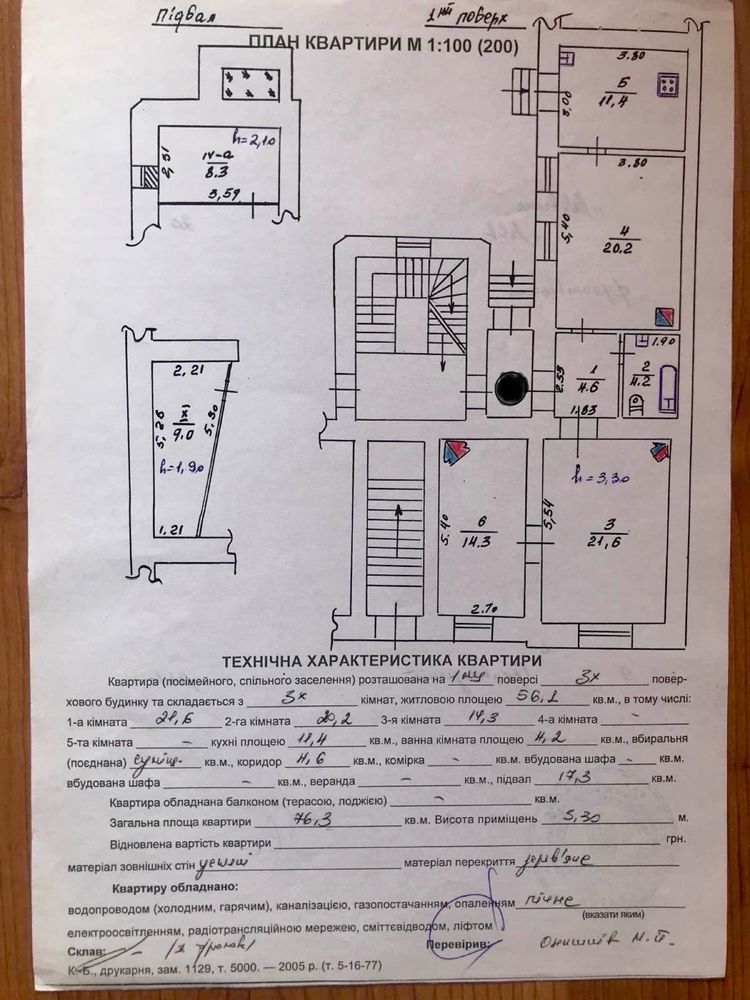 Підвал
1ий поверх
ПЛАН КВАРТИРИ М 1:100 (200)
h=2,10
2,31
IV-а
8.3
3,59
3.80
3,00
5
11,4
3.80
5,40
4
20.2
2,21
5.26
IXI
9.0
5.30
h=1,90
1,21
2.53
1
4.6
1.83
1.90
2
4.2
5.40
6
14.3
2.70
h=3,30
5,54
3
21,6
ТЕХНІЧНА ХАРАКТЕРИСТИКА КВАРТИРИ
Квартира (посімейного, спільного заселення) розташована на 1му поверсі 3х повер-
хового будинку та складається з 3х кімнат, житловою площею 56,1 кв.м., в тому числі:
1-а кімната 21,6 2-га кімната 20,2 3-я кімната 14,3 4-а кімната –
5-та кімната – кухні площею 11,4 кв.м., ванна кімната площею 4,2 кв.м., вбиральня
(поєднана) суміщ. кв.м., коридор 4,6 кв.м., комірка – кв.м. вбудована шафа – кв.м.
вбудована шафа – кв.м., веранда – кв.м., підвал 17,3 кв.м.
Квартира обладнана балконом (терасою, лоджією) – кв.м.
Загальна площа квартири 76,3 кв.м. Висота приміщень 3,30 м.
Відновлена вартість квартири грн.
матеріал зовнішніх стін цегла матеріал перекриття дерев'яне
Квартиру обладнано:
водопроводом (холодним, гарячим), каналізацією, газопостачанням, опаленням пічне
(вказати яким)
електроосвітленням, радіотрансляційною мережею, сміттєвідводом, ліфтом
Склав: Перевірив: Онишків М.П.
К.-Б., друкарня, зам. 1129, т. 5000. — 2005 р. (т. 5-16-77)